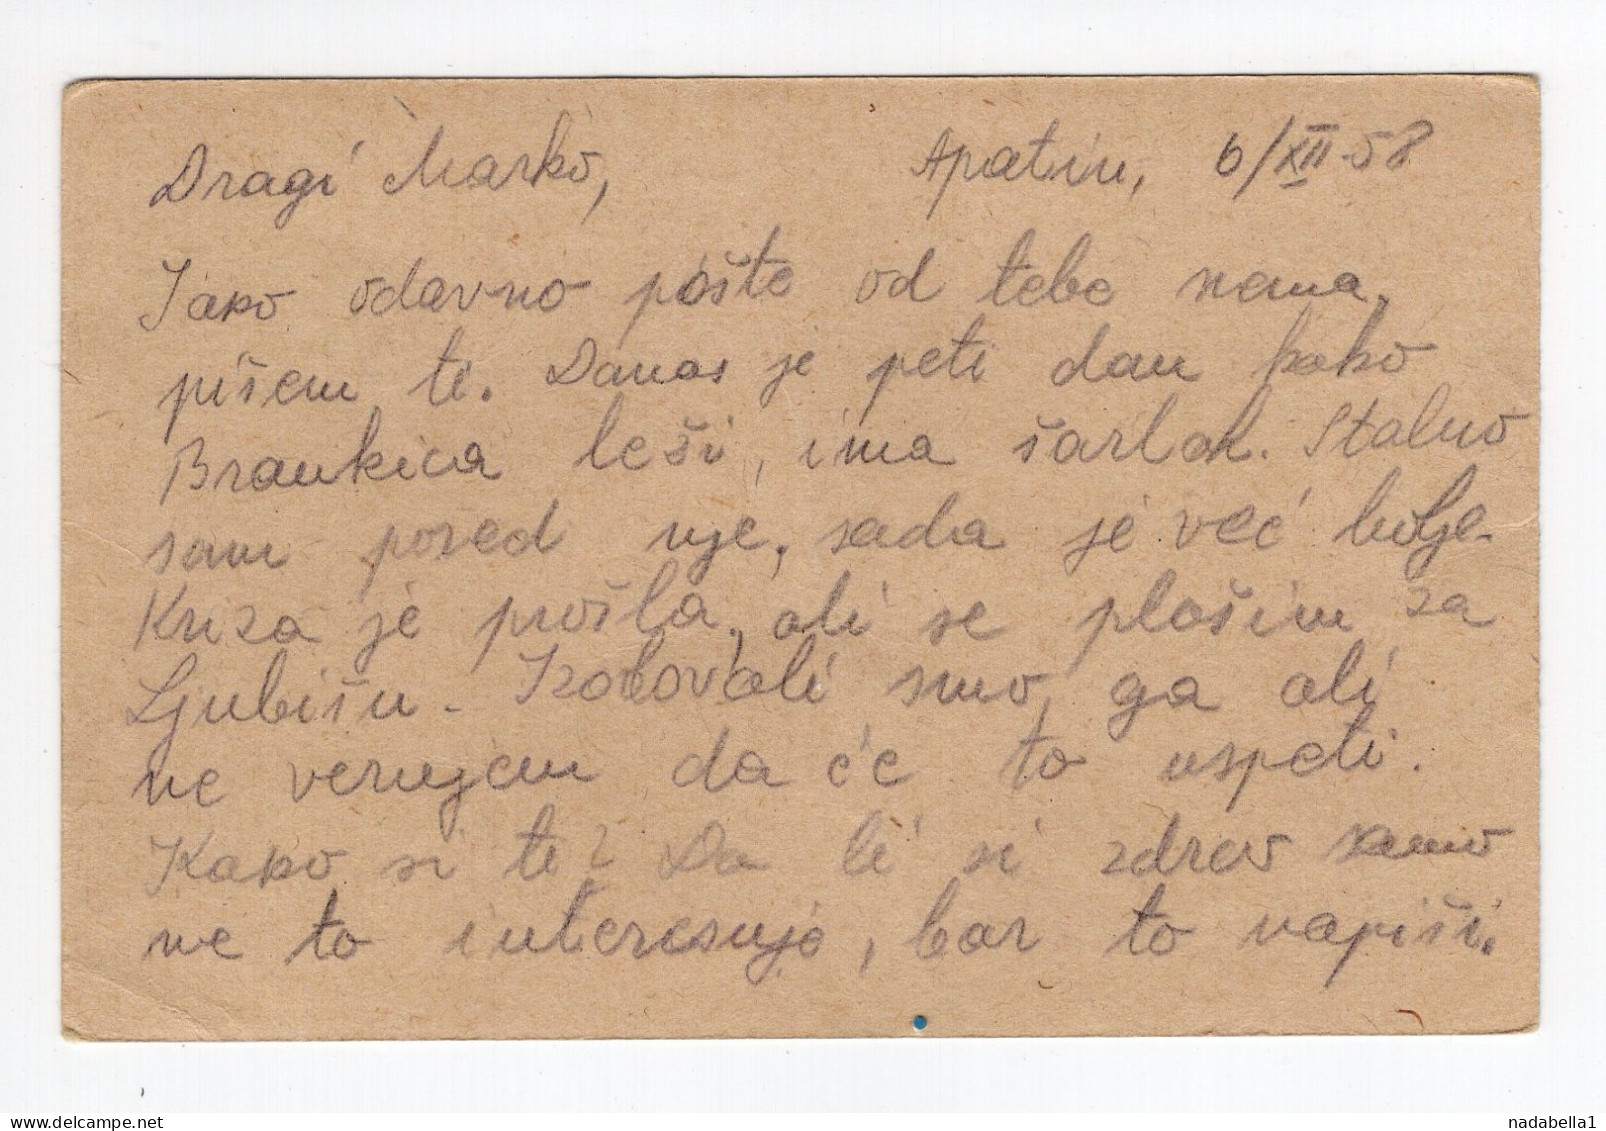 Dragi Marko, Apatin, 6/XII-58
Iako odavno pošte od tebe nema,
pišem ti. Danas je peti dan kako
Brankica leži, ima šarlah. Stalno
sam pored nje, sada je već bolje.
Kriza je prošla, ali se plašim za
Ljubišu. Izolovali smo ga ali
ne verujem da će to uspeti.
Kako si ti? Da li si zdrav samo
me to interesuje, bar to napiši.
nadabella1